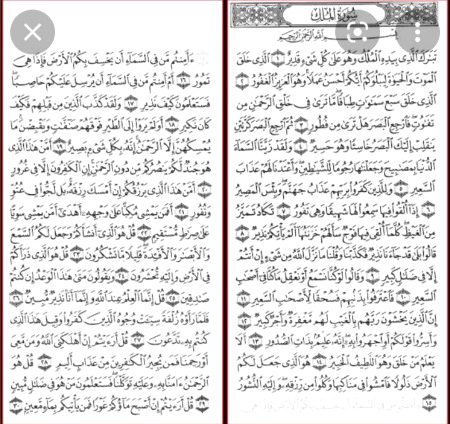 سُورَةُ الْمُلْكِ
بِسْمِ اللَّهِ الرَّحْمَٰنِ الرَّحِيمِ
تَبَٰرَكَ الَّذِى بِيَدِهِ الْمُلْكُ وَهُوَ عَلَىٰ كُلِّ شَىْءٍ قَدِيرٌ ١ الَّذِى خَلَقَ
الْمَوْتَ وَالْحَيَوٰةَ لِيَبْلُوَكُمْ أَيُّكُمْ أَحْسَنُ عَمَلًا وَهُوَ الْعَزِيزُ الْغَفُورُ ٢
الَّذِى خَلَقَ سَبْعَ سَمَٰوَٰتٍ طِبَاقًا مَّا تَرَىٰ فِى خَلْقِ الرَّحْمَٰنِ مِن
تَفَٰوُتٍ فَارْجِعِ الْبَصَرَ هَلْ تَرَىٰ مِن فُطُورٍ ٣ ثُمَّ ارْجِعِ الْبَصَرَ كَرَّتَيْنِ
يَنقَلِبْ إِلَيْكَ الْبَصَرُ خَاسِئًا وَهُوَ حَسِيرٌ ٤ وَلَقَدْ زَيَّنَّا السَّمَاءَ
الدُّنْيَا بِمَصَٰبِيحَ وَجَعَلْنَٰهَا رُجُومًا لِّلشَّيَٰطِينِ وَأَعْتَدْنَا لَهُمْ عَذَابَ
السَّعِيرِ ٥ وَلِلَّذِينَ كَفَرُوا بِرَبِّهِمْ عَذَابُ جَهَنَّمَ وَبِئْسَ الْمَصِيرُ
٦ إِذَا أُلْقُوا فِيهَا سَمِعُوا لَهَا شَهِيقًا وَهِىَ تَفُورُ ٧ تَكَادُ تَمَيَّزُ
مِنَ الْغَيْظِ كُلَّمَا أُلْقِىَ فِيهَا فَوْجٌ سَأَلَهُمْ خَزَنَتُهَا أَلَمْ يَأْتِكُمْ نَذِيرٌ ٨
قَالُوا بَلَىٰ قَدْ جَاءَنَا نَذِيرٌ فَكَذَّبْنَا وَقُلْنَا مَا نَزَّلَ اللَّهُ مِن شَىْءٍ إِنْ أَنتُمْ
إِلَّا فِى ضَلَٰلٍ كَبِيرٍ ٩ وَقَالُوا لَوْ كُنَّا نَسْمَعُ أَوْ نَعْقِلُ مَا كُنَّا فِى أَصْحَٰبِ
السَّعِيرِ ١٠ فَاعْتَرَفُوا بِذَنبِهِمْ فَسُحْقًا لِّأَصْحَٰبِ السَّعِيرِ ١١
إِنَّ الَّذِينَ يَخْشَوْنَ رَبَّهُم بِالْغَيْبِ لَهُم مَّغْفِرَةٌ وَأَجْرٌ كَبِيرٌ ١٢
وَأَسِرُّوا قَوْلَكُمْ أَوِ اجْهَرُوا بِهِ إِنَّهُ عَلِيمٌ بِذَاتِ الصُّدُورِ ١٣ أَلَا
يَعْلَمُ مَنْ خَلَقَ وَهُوَ اللَّطِيفُ الْخَبِيرُ ١٤ هُوَ الَّذِى جَعَلَ لَكُمُ
الْأَرْضَ ذَلُولًا فَامْشُوا فِى مَنَاكِبِهَا وَكُلُوا مِن رِّزْقِهِ وَإِلَيْهِ النُّشُورُ
١٥
ءَأَمِنتُم مَّن فِى السَّمَاءِ أَن يَخْسِفَ بِكُمُ الْأَرْضَ فَإِذَا هِىَ
تَمُورُ ١٦ أَمْ أَمِنتُم مَّن فِى السَّمَاءِ أَن يُرْسِلَ عَلَيْكُمْ حَاصِبًا
فَسَتَعْلَمُونَ كَيْفَ نَذِيرِ ١٧ وَلَقَدْ كَذَّبَ الَّذِينَ مِن قَبْلِهِمْ فَكَيْفَ
كَانَ نَكِيرِ ١٨ أَوَلَمْ يَرَوْا إِلَى الطَّيْرِ فَوْقَهُمْ صَٰفَّٰتٍ وَيَقْبِضْنَ مَا
يُمْسِكُهُنَّ إِلَّا الرَّحْمَٰنُ إِنَّهُ بِكُلِّ شَىْءٍ بَصِيرٌ ١٩ أَمَّنْ هَٰذَا الَّذِى
هُوَ جُندٌ لَّكُمْ يَنصُرُكُم مِّن دُونِ الرَّحْمَٰنِ إِنِ الْكَٰفِرُونَ إِلَّا فِى غُرُورٍ
٢٠ أَمَّنْ هَٰذَا الَّذِى يَرْزُقُكُمْ إِنْ أَمْسَكَ رِزْقَهُ بَل لَّجُّوا فِى عُتُوٍّ
وَنُفُورٍ ٢١ أَفَمَن يَمْشِى مُكِبًّا عَلَىٰ وَجْهِهِ أَهْدَىٰ أَمَّن يَمْشِى سَوِيًّا
عَلَىٰ صِرَٰطٍ مُّسْتَقِيمٍ ٢٢ قُلْ هُوَ الَّذِى أَنشَأَكُمْ وَجَعَلَ لَكُمُ السَّمْعَ
وَالْأَبْصَٰرَ وَالْأَفْئِدَةَ قَلِيلًا مَّا تَشْكُرُونَ ٢٣ قُلْ هُوَ الَّذِى ذَرَأَكُمْ
فِى الْأَرْضِ وَإِلَيْهِ تُحْشَرُونَ ٢٤ وَيَقُولُونَ مَتَىٰ هَٰذَا الْوَعْدُ إِن كُنتُمْ
صَٰدِقِينَ ٢٥ قُلْ إِنَّمَا الْعِلْمُ عِندَ اللَّهِ وَإِنَّمَا أَنَا نَذِيرٌ مُّبِينٌ ٢٦
فَلَمَّا رَأَوْهُ زُلْفَةً سِيئَتْ وُجُوهُ الَّذِينَ كَفَرُوا وَقِيلَ هَٰذَا الَّذِى
كُنتُم بِهِ تَدَّعُونَ ٢٧ قُلْ أَرَءَيْتُمْ إِنْ أَهْلَكَنِىَ اللَّهُ وَمَن مَّعِىَ
أَوْ رَحِمَنَا فَمَن يُجِيرُ الْكَٰفِرِينَ مِنْ عَذَابٍ أَلِيمٍ ٢٨ قُلْ هُوَ
الرَّحْمَٰنُ ءَامَنَّا بِهِ وَعَلَيْهِ تَوَكَّلْنَا فَسَتَعْلَمُونَ مَنْ هُوَ فِى ضَلَٰلٍ مُّبِينٍ
٢٩ قُلْ أَرَءَيْتُمْ إِنْ أَصْبَحَ مَاؤُكُمْ غَوْرًا فَمَن يَأْتِيكُم بِمَاءٍ مَّعِينٍ ٣٠